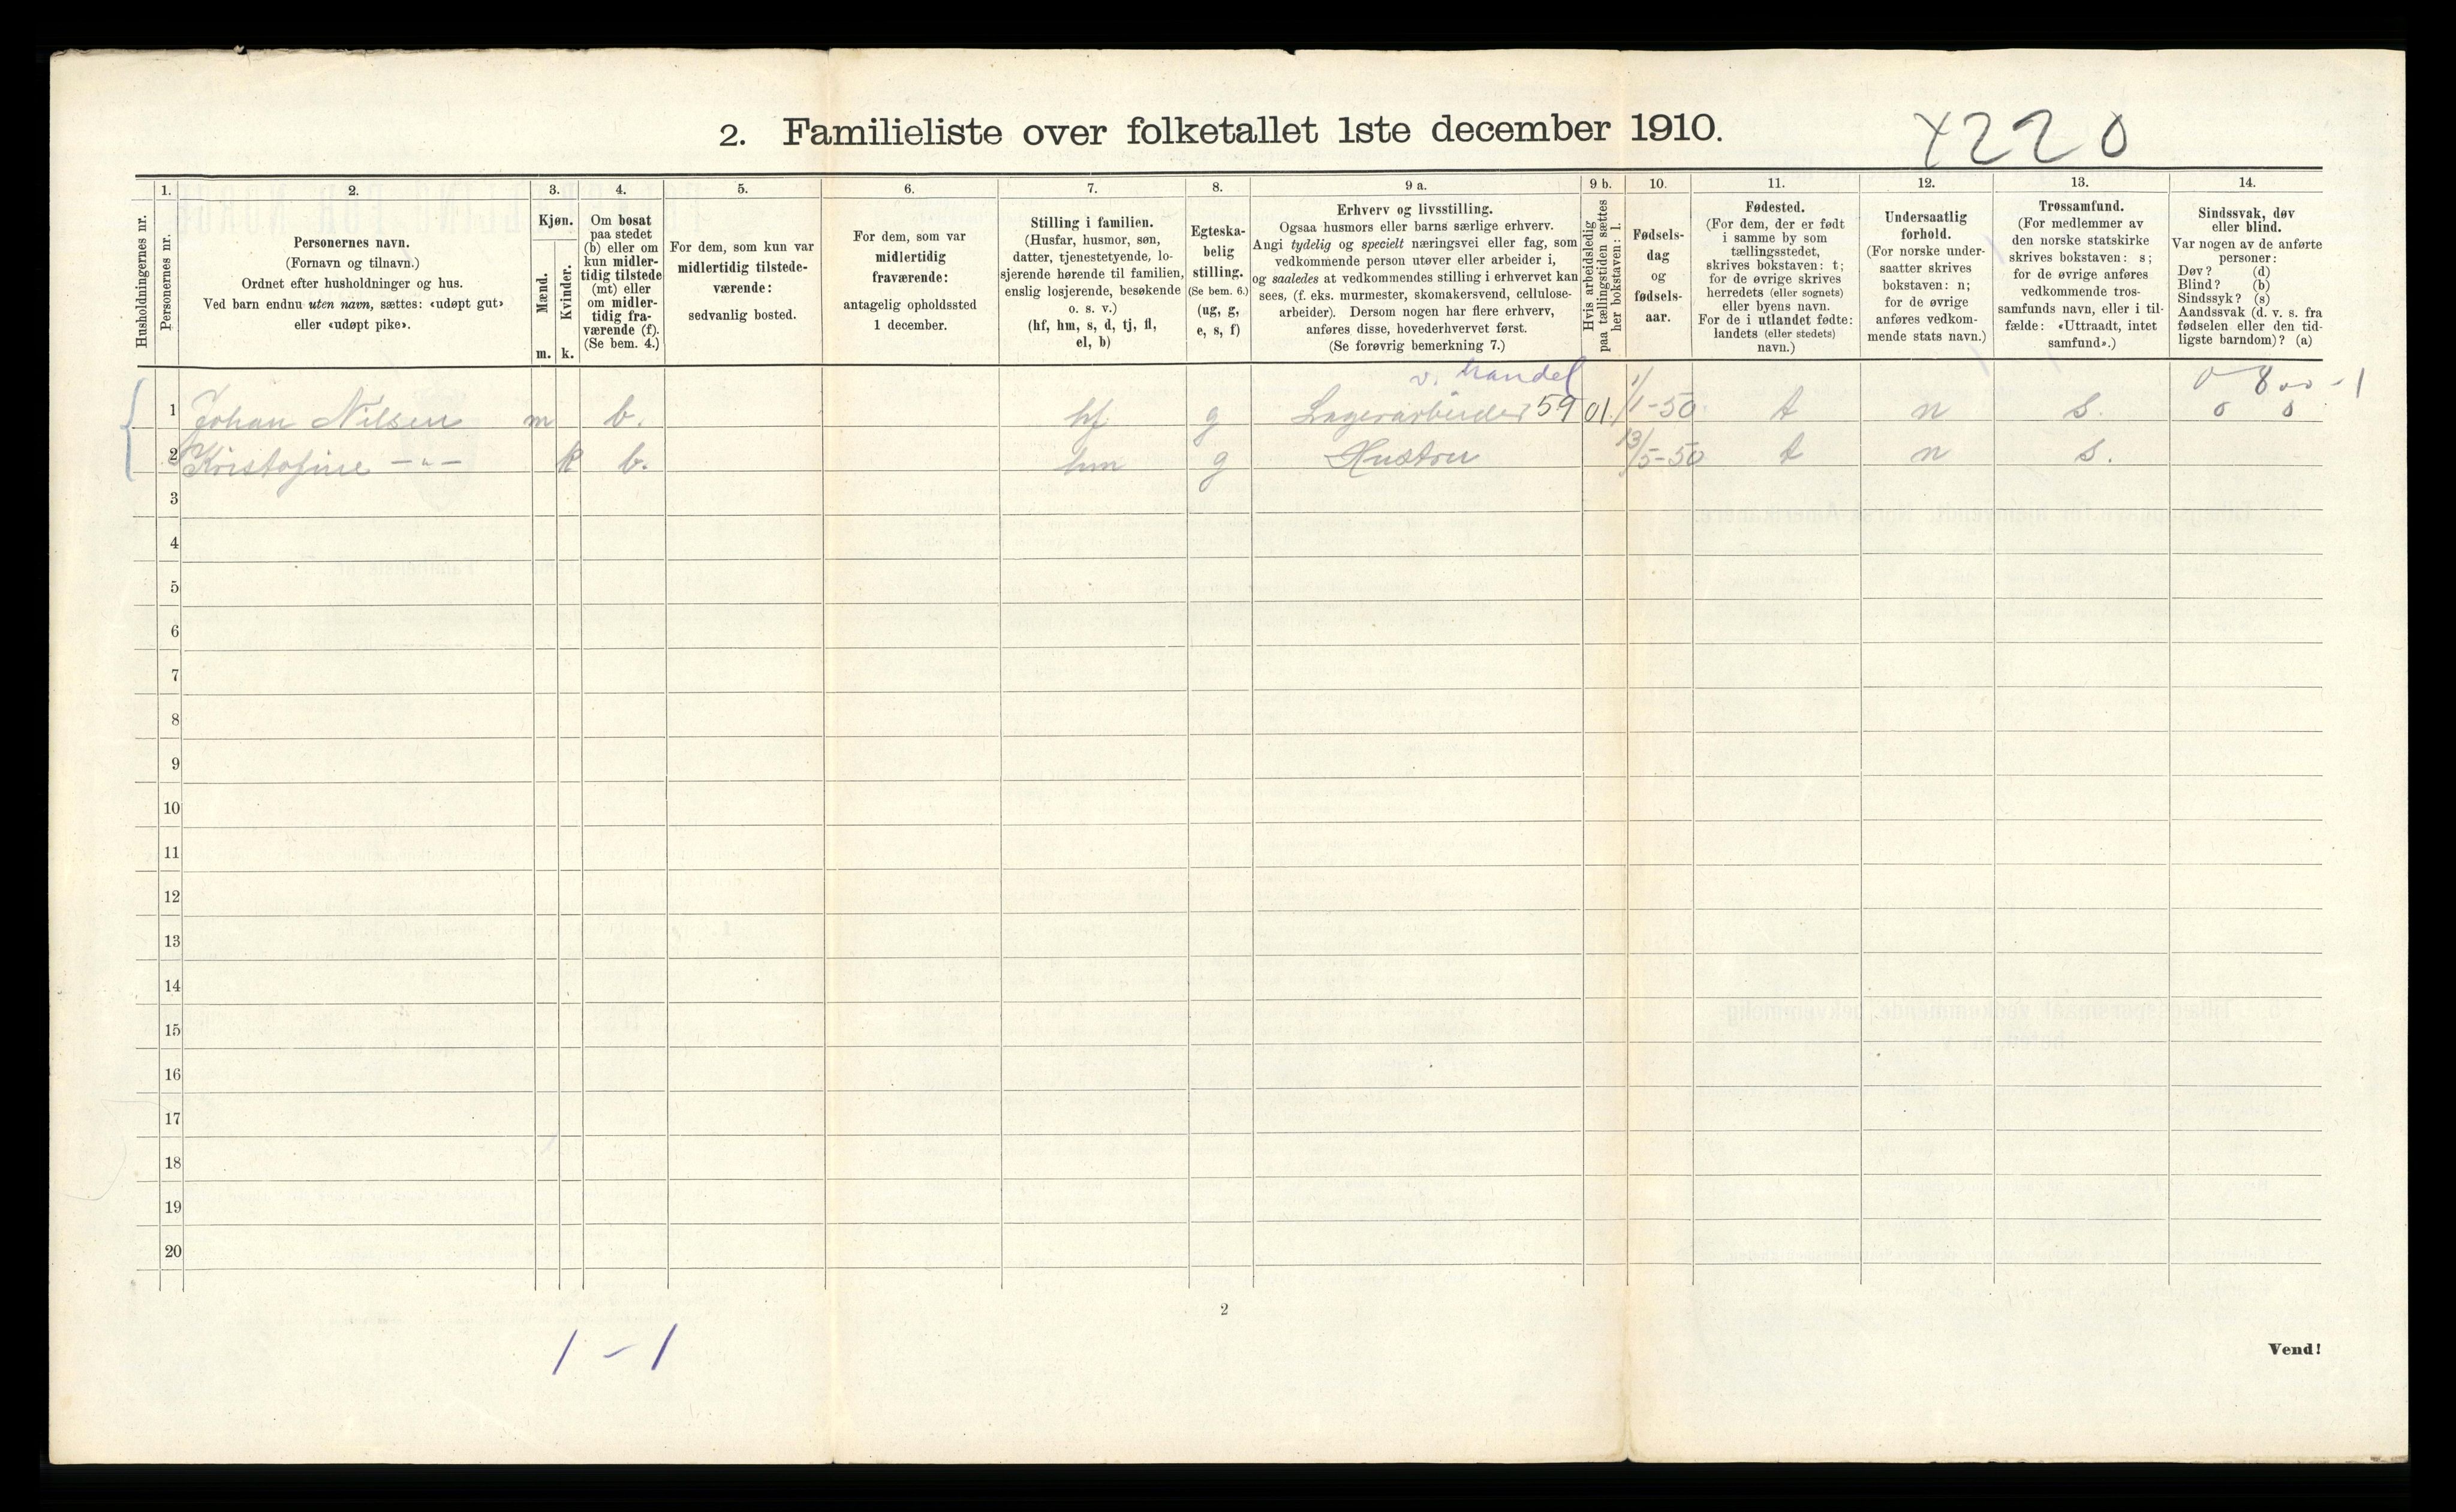 2. Familieliste over folketallet 1ste december 1910.
4220
Husholdningernes nr.
1.
Personernes nr.
2.
Personernes navn.
(Fornavn og tilnavn.)
Ordnet efter husholdninger og hus.
Ved barn endnu uten navn, sættes: «udøpt gut»
eller «udøpt pike».
3.
Kjøn.
Mænd.
Kvinder.
m. k.
4.
Om bosat
paa stedet
(b) eller om
kun midler-
tidig tilstede
(mt) eller
om midler-
tidig fra-
værende (f).
(Se bem. 4.)
5.
For dem, som kun var
midlertidig tilstede-
værende:
sedvanlig bosted.
6.
For dem, som var
midlertidig
fraværende:
antagelig opholdssted
1 december.
7.
Stilling i familien.
(Husfar, husmor, søn,
datter, tjenestetyende, lo-
sjerende hørende til familien,
enslig losjerende, besøkende
o. s. v.)
(hf, hm, s, d, tj, fl,
el, b)
8.
Egteska-
belig
stilling.
(Se bem. 6.)
(ug, g,
e, s, f)
9 a.
Erhverv og livsstilling.
Ogsaa husmors eller barns særlige erhverv.
Angi tydelig og specielt næringsvei eller fag, som
vedkommende person utøver eller arbeider i,
og saaledes at vedkommendes stilling i erhvervet kan
sees, (f. eks. murmester, skomakersvend, cellulose-
arbeider). Dersom nogen har flere erhverv,
anføres disse, hovederhvervet først.
(Se forøvrig bemerkning 7.)
9 b.
Hvis arbeidsledig
paa tællingstiden sættes
her bokstaven: l.
10.
Fødsels-
dag
og
fødsels-
aar.
11.
Fødested.
(For dem, der er født
i samme by som
tællingsstedet,
skrives bokstaven: t;
for de øvrige skrives
herredets (eller sognets)
eller byens navn.
For de i utlandet fødte:
landets (eller stedets)
navn.)
12.
Undersaatlig
forhold.
(For norske under-
saatter skrives
bokstaven: n;
for de øvrige
anføres vedkom-
mende stats navn.)
13.
Trossamfund.
(For medlemmer av
den norske statskirke
skrives bokstaven: s;
for de øvrige anføres
vedkommende tros-
samfunds navn, eller i til-
fælde: «Uttraadt, intet
samfund».)
14.
Sindssvak, døv
eller blind.
Var nogen av de anførte
personer:
Døv? (d)
Blind? (b)
Sindssyk? (s)
Aandssvak (d. v. s. fra
fødselen eller den tid-
ligste barndom)? (a)
v. handel
0 800 - 1
1 Johan Nilsen m b. hf g Lagerarbeider 59 01 1/1-50 t n s. 0 0
2 Kristofine —"— k b. hm g Hustru 13/5-50 t n s.
3
4
5
6
7
8
9
10
11
12
13
14
15
16
17
18
19
20
2
1 - 1
Vend!